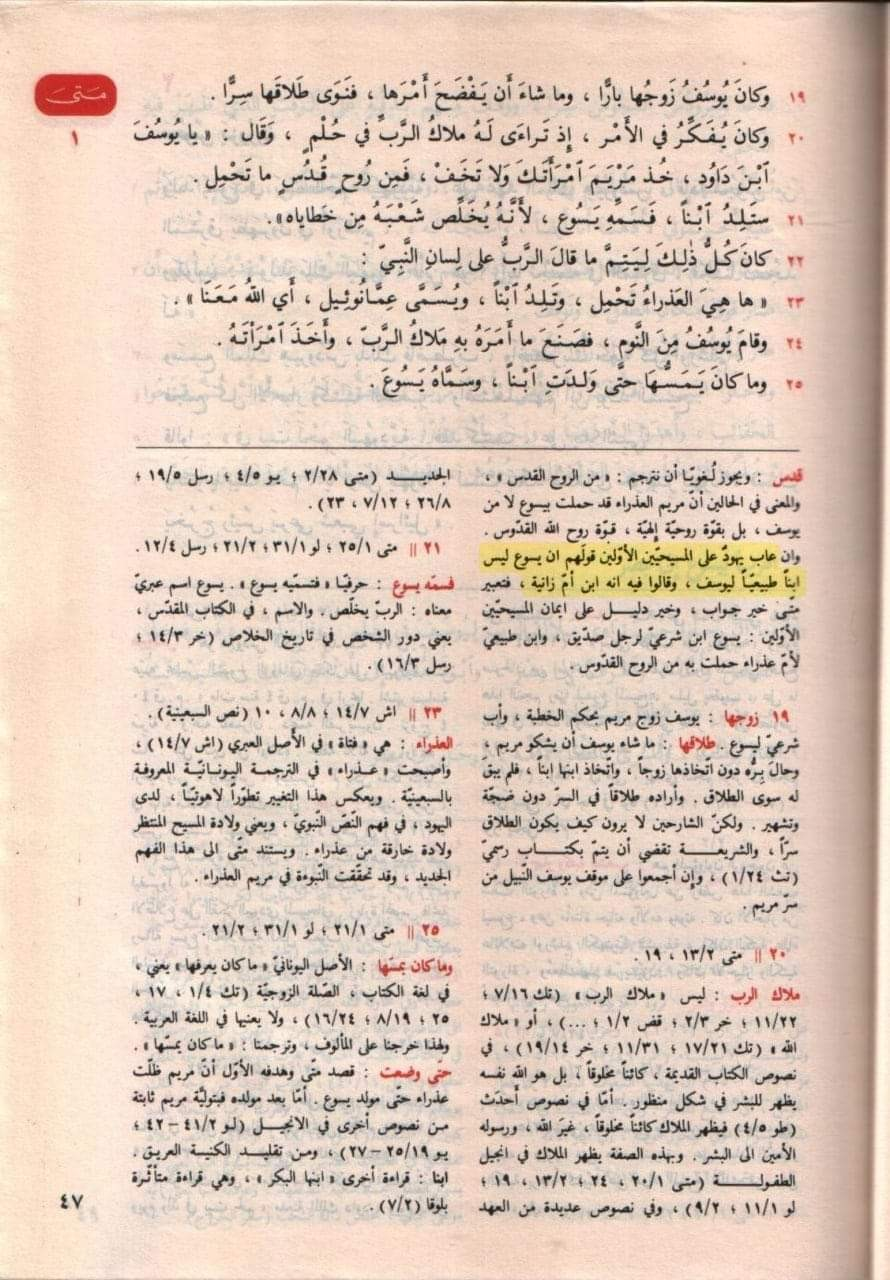 متى
١
١٩ وَكانَ يُوسُفُ زَوجُها بارًّا ، وما شاءَ أَن يَفْضَحَ أَمْرَها ، فَنَوَى طَلاقَها سِرًّا .
٢٠ وَكانَ يُفَكِّرُ في الأَمْر ، إِذ تَراءَى لَهُ مَلاكُ الرَّبِّ في حُلْمٍ ، وَقَال : « يا يُوسُفَ
ٱبْنَ دَاوُد ، خُذ مَرْيَمَ ٱمْرَأَتَكَ وَلا تَخَفْ ، فَمِن رُوحٍ قُدُسٍ ما تَحْمِل .
٢١ ستَلِدُ ٱبْناً ، فَسَمِّهِ يَسُوع ، لأَنَّهُ يُخَلِّص شَعْبَهُ مِن خَطاياه » .
٢٢ كانَ كُلُّ ذٰلِكَ لِيَتِمَّ ما قالَ الرَّبُّ على لِسانِ النَّبِيّ :
٢٣ « ها هِيَ العَذراءُ تَحْمِل ، وتَلِدُ ٱبْناً ، ويُسَمَّى عِمَّانُوئِيل ، أَي اللهُ مَعَنَا » .
٢٤ وقامَ يُوسُفُ مِنَ النَّوم ، فصَنَعَ ما أَمَرَهُ بِهِ مَلاكُ الرَّبّ ، وأَخَذَ ٱمْرَأَتَهُ .
٢٥ وما كانَ يَمَسُّهَا حَتَّى وَلَدَتِ ٱبْناً ، وسَمَّاهُ يَسُوعَ .
قدس : ويجوز لُغويًّا أن نترجم : « من الروح القدس » ،
والمعنى في الحالين أنّ مريم العذراء قد حملت بيسوع لا من
يوسف ، بل بقوّة روحيّة إلهيّة ، قوّة روح الله القدّوس .
وان عاب يهودٌ على المسيحيّين الأوّلين قولَهم ان يسوع ليس
ابناً طبيعيّاً ليوسف ، وقالوا فيه انه ابن أمّ زانية ، فتعبير
متّى خير جواب ، وخير دليل على ايمان المسيحيّين
الأوّلين : يسوع ابن شرعيّ لرجل صدّيق ، وابن طبيعيّ
لأمّ عذراء حملت به من الروح القدّوس .
١٩ زوجها : يوسف زوج مريم بحكم الخطبة ، وأب
شرعيّ ليسوع . طلاقها : ما شاء يوسف أن يشكو مريم ،
وحالَ بِرُّه دون اتّخاذها زوجاً ، واتّخاذ ابنها ابناً ، فلم يبقَ
له سوى الطلاق . وأراده طلاقاً في السرّ دون ضجّة
وتشهير . ولكنّ الشارحين لا يرون كيف يكون الطلاق
سرّاً ، والشريعة تقضي أن يتمّ بكتاب رسميّ
(تث ١/٢٤) ، وإن أجمعوا على موقف يوسف النّبيل من
سرّ مريم .
٢٠ || متى ١٣/٢ ، ١٩ .
ملاك الرب : ليس « ملاك الرب » (تك ٧/١٦ ؛
١١/٢٢ ؛ خر ٢/٣ ؛ قض ١/٢ ؛ ...) ، أو « ملاك
الله » (تك ١٧/٢١ ؛ ١١/٣١ ؛ خر ١٩/١٤) ، في
نصوص الكتاب القديمة ، كائناً مخلوقاً ، بل هو الله نفسه
يظهر للبشر في شكل منظور . أمّا في نصوص أحدث
(طو ٤/٥) فيظهر الملاك كائناً مخلوقاً ، غيرَ الله ، ورسوله
الأمين الى البشر . وبهذه الصفة يظهر الملاك في انجيل
الطفولة (متى ٢٠/١ ، ٢٤ ، ١٣/٢ ، ١٩ ؛
لو ١١/١ ؛ ٩/٢) ، وفي نصوص عديدة من العهد
الجديد (متى ٢٨/٢ ؛ يو ٤/٥ ؛ رسل ١٩/٥ ؛
٢٦/٨ ؛ ٧/١٢ ، ٢٣) .
٢١ || متى ٢٥/١ ؛ لو ٣١/١ ؛ ٢١/٢ ؛ رسل ١٢/٤ .
فسمّه يسوع : حرفيّا « فتسمّيه يسوع » . يسوع اسم عبريّ
معناه : الربّ يخلّص . والاسم ، في الكتاب المقدّس ،
يعني دور الشخص في تاريخ الخلاص (خر ١٤/٣ ؛
رسل ١٦/٣) .
٢٣ || اش ١٤/٧ ؛ ٨/٨ ، ١٠ (نص السبعينية) .
العذراء : هي « فتاة » في الأصل العبري (اش ١٤/٧) ،
وأصبحت « عذراء » في الترجمة اليونانيّة المعروفة
بالسبعينيّة . ويعكس هذا التغيير تطوّراً لاهوتيّاً ، لدى
اليهود ، في فهم النّصّ النّبويّ ، ويعني ولادة المسيح المنتظر
ولادة خارقة من عذراء . ويستند متّى الى هذا الفهم
الجديد ، وقد تحقّقت النّبوءة في مريم العذراء .
٢٥ || متى ٢١/١ ؛ لو ٣١/١ ؛ ٢١/٢ .
وما كان يمسّها : الأصل اليونانيّ « ما كان يعرفها » يعني ،
في لغة الكتاب ، الصّلة الزوجيّة (تك ١/٤ ، ١٧ ،
٢٥ ؛ ٨/١٩ ؛ ١٦/٢٤) ، ولا يعنيها في اللغة العربية .
ولهذا خرجنا على المألوف ، وترجمنا : « ما كان يمسّها » .
حتى وضعت : قصد متّى وهدفه الأوّل أنّ مريم ظلّت
عذراء حتّى مولد يسوع . أمّا بعد مولده فبتوليّة مريم ثابتة
من نصوص أخرى في الانجيل (لو ٤١/٢ – ٤٢ ؛
يو ٢٥/١٩ – ٢٧) ، ومن تقليد الكنيسة العريق .
ابنا : قراءة أخرى « ابنها البكر » ، وهي قراءة متأثّرة
بلوقا (٧/٢) .
٤٧